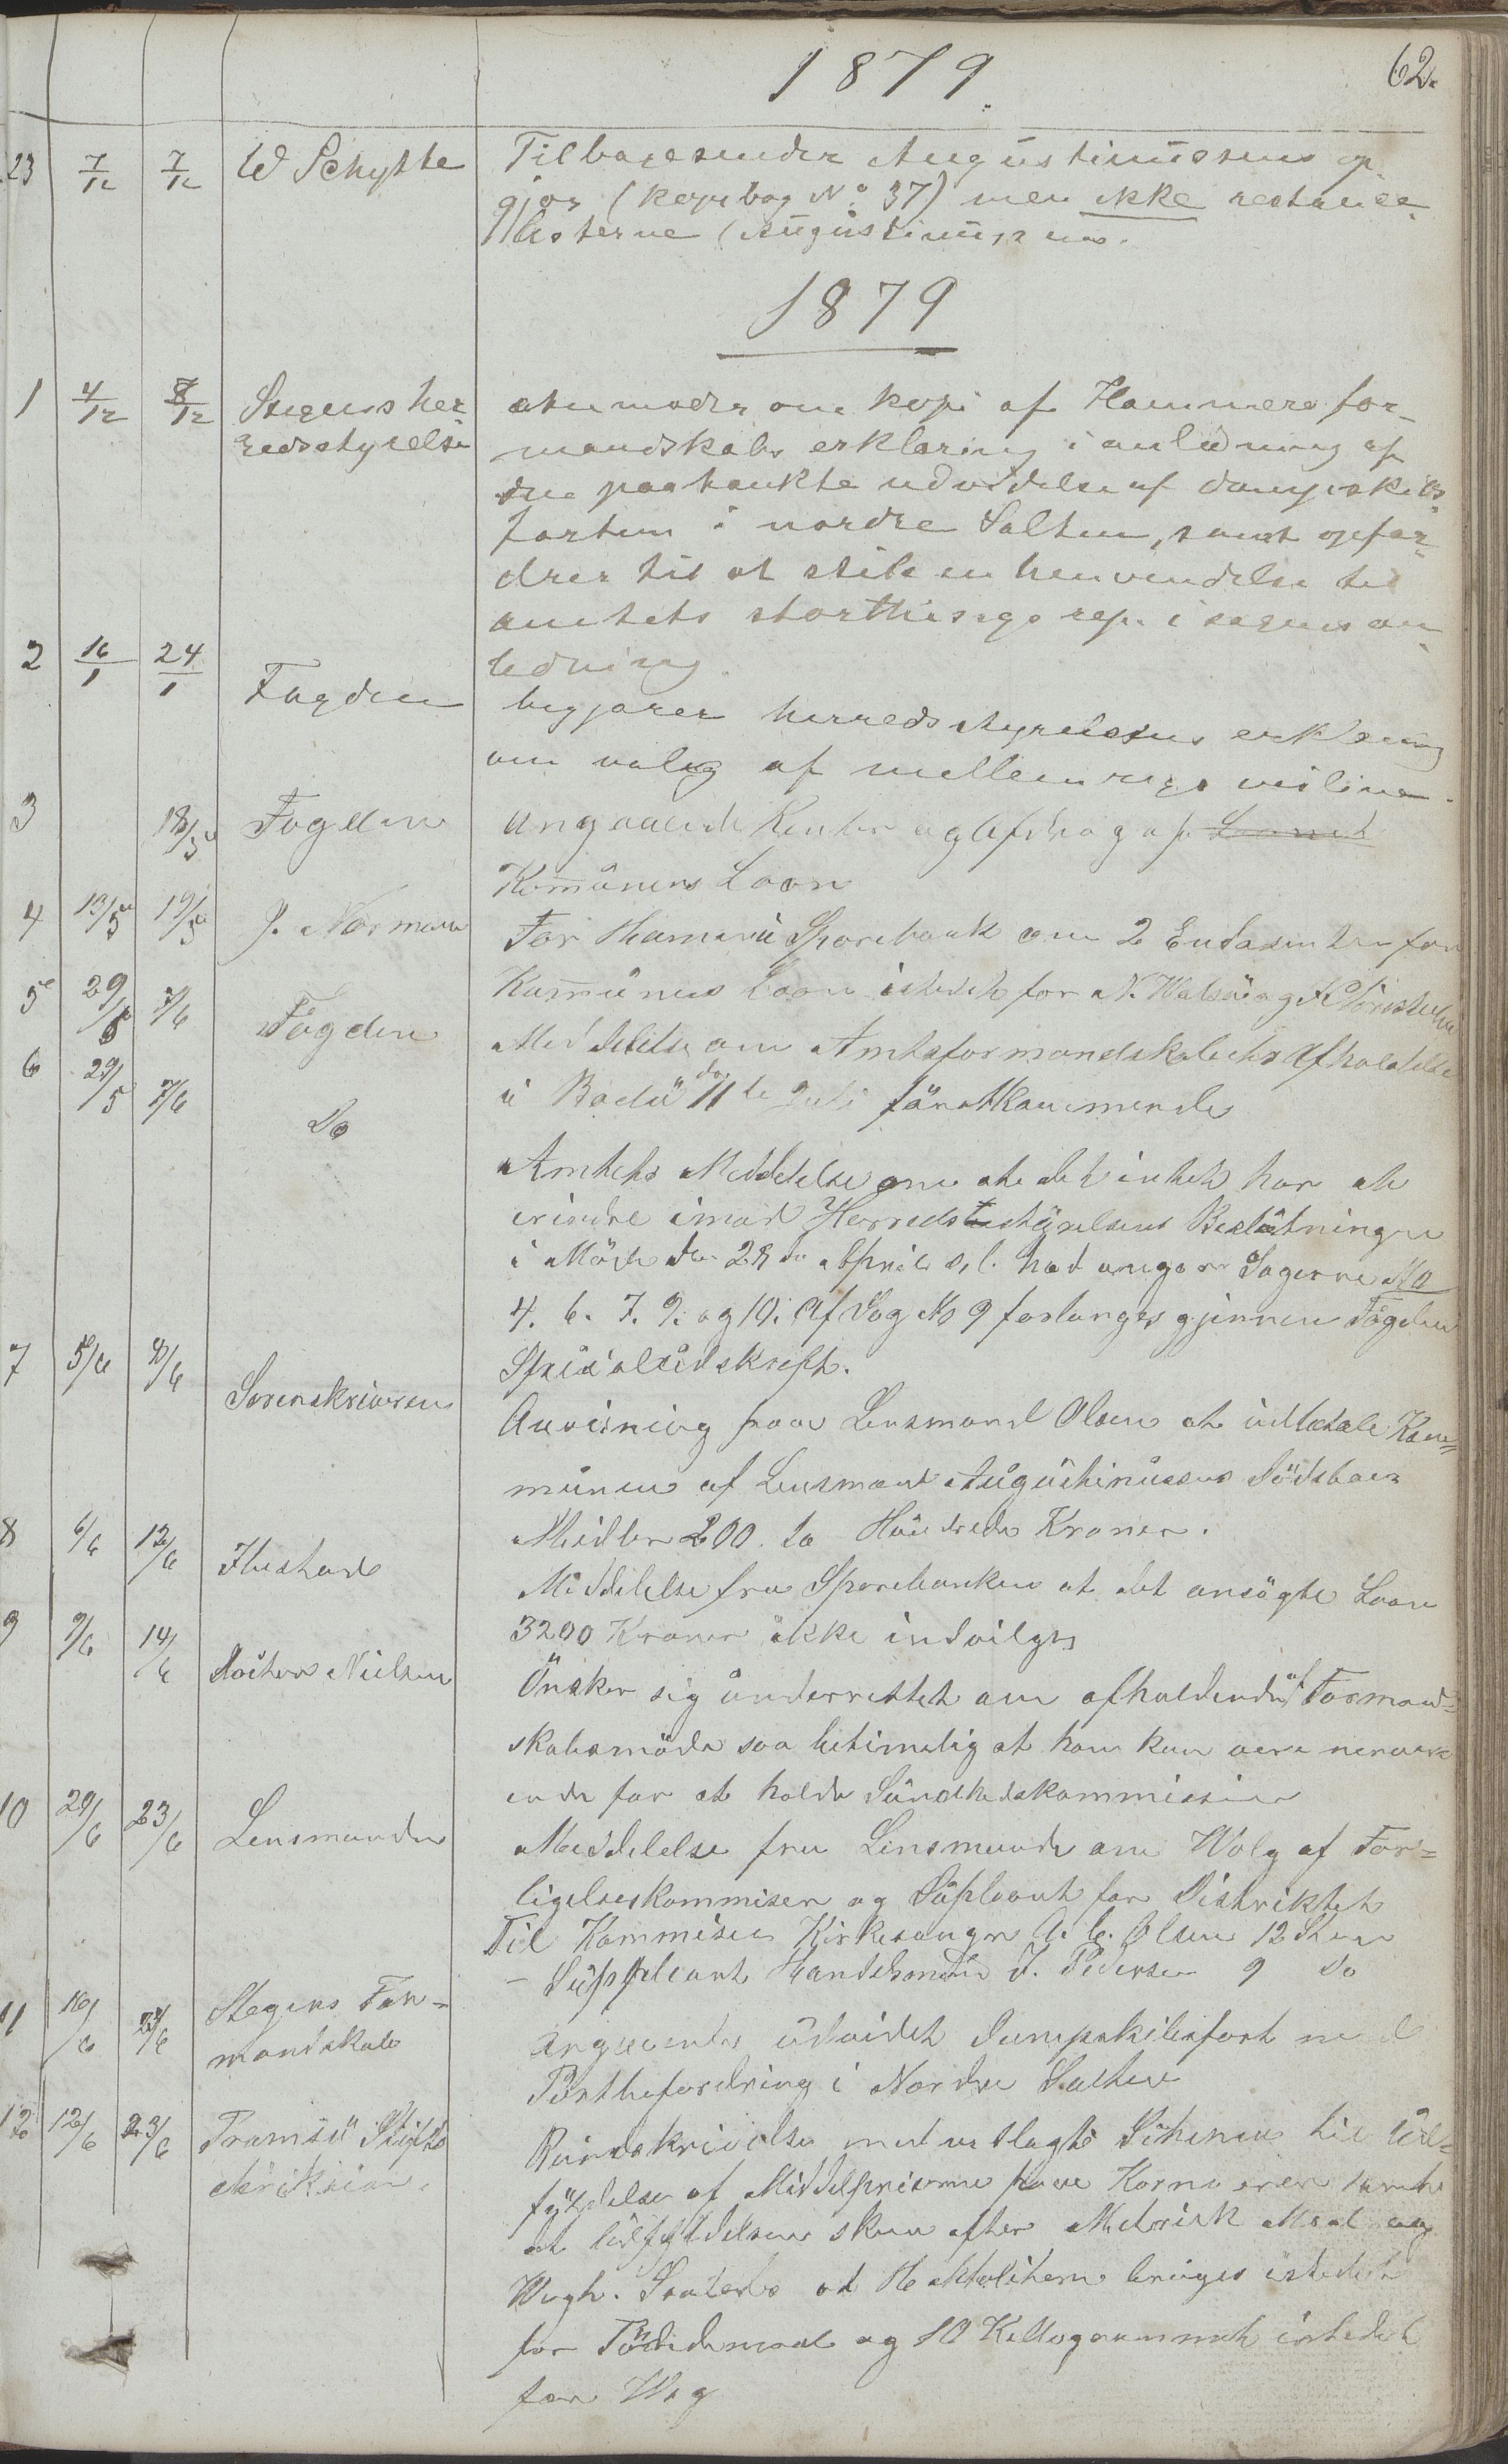 1879.
62.
23 7/12 7/12 W Schytte Tilbagesender Augustinussens op-
gjør (kopibog No 37) men ikke restance
listerne (Augustinussens.
1879
1 4/12 8/12 Stegens her anmoder om kopi af Hammerø for-
redsstyrelse mandskabs erklæring i anledning af
den paatænkte udvidelse af dampskibs
farten i nordre Salten, samt opfor-
drer til at stile en henvendelse til
amtets storthings rep. i sagens an
ledning.
2 16/1 24/1 Fogden begjærer herredsstyrelsens erklæring
om valg af mellemrigs veiline.
3 18/5 Fogden angaaende Renter og Afdrag af Laanet
Kommunens Laan
4 13/5 19/5 J. Normann For Hamarø Sparebank om 2 Endosenter for
Kommunens Laan istedet for N. Walsøe og
5 29/5 7/6 Fogden Meddelelse om Amtsformandskabets Afholdelse
i Bodø den 11te Juli førstkommende
6 29/5 7/6 Do Amtets Meddelelse om at det intet har at
erindre imod Herredsstyrelsens Beslutninger
i Møde den 28de April d. l. hvad angaar Sagerne No
4. 6. 7. 9. og 10. Af Sag No 9 forlanges gjennem Fogden
Spesialudskrift.
7 5/6 8/6 Sorenskriveren Anvisning paa Lensmand Olsen at indbetale Kom=
munen af Lensmand Augustinussens Dødsboes
Midler 200. to Hundrede Kroner.
8 6/6 12/6 Hustad Meddelelse fra Sparebanken at det ansøgte Laan
3200 Kroner ikke indvilges
9 9/6 14/6 Doctor Nielsen Ønsker sig underrettet om afholdende af Formand=
skabsmøde saa betimelig at han kan være nærvære
ende for at holde Sundhedskommission
10 20/6 23/6 Lensmanden Meddelelse fra Lensmanden om Walg af For=
ligelseskommisær og Supleant for Distriktet
Til Kommisær Kirkesanger A. C. Olsen 12 Stem
- Suppleant Handelsmand J. Pedersen 9 do
11 16/6 23/6 Stegens For= angaaende udvidet Dampskibsfart med
mandskab Postbefordring i Nordre Salten
12 12/6 23/6 Tromsø Stifts Rundskrivelse med vedlagte Schema til Ud=
direksion. fyldelse af Middelpriserne paa Kornvarer samt
at udfyldelsen sker efter Metrisk Maal og
Wegt. Saaledes at Hektoliteren bruges istedet
for Tøndemaal og 10 Killogrammet istedet
for Wog